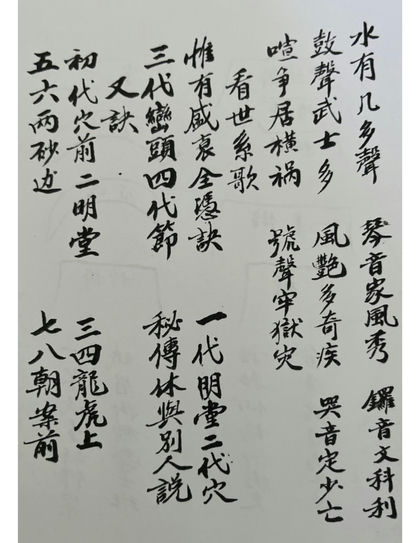 水有几多聲　琴音家風秀　鑼音文科利
鼓聲武士多　風艷多奇疾　哭音定少亡
喧争居橫禍　號聲牢獄灾
看世系歌
惟有盛衰全憑訣　一代明堂二代穴
三代巒頭四代節　秘傳休與別人説
又訣
初代穴前二明堂　三四龍虎上
五六兩砂边　七八朝案前